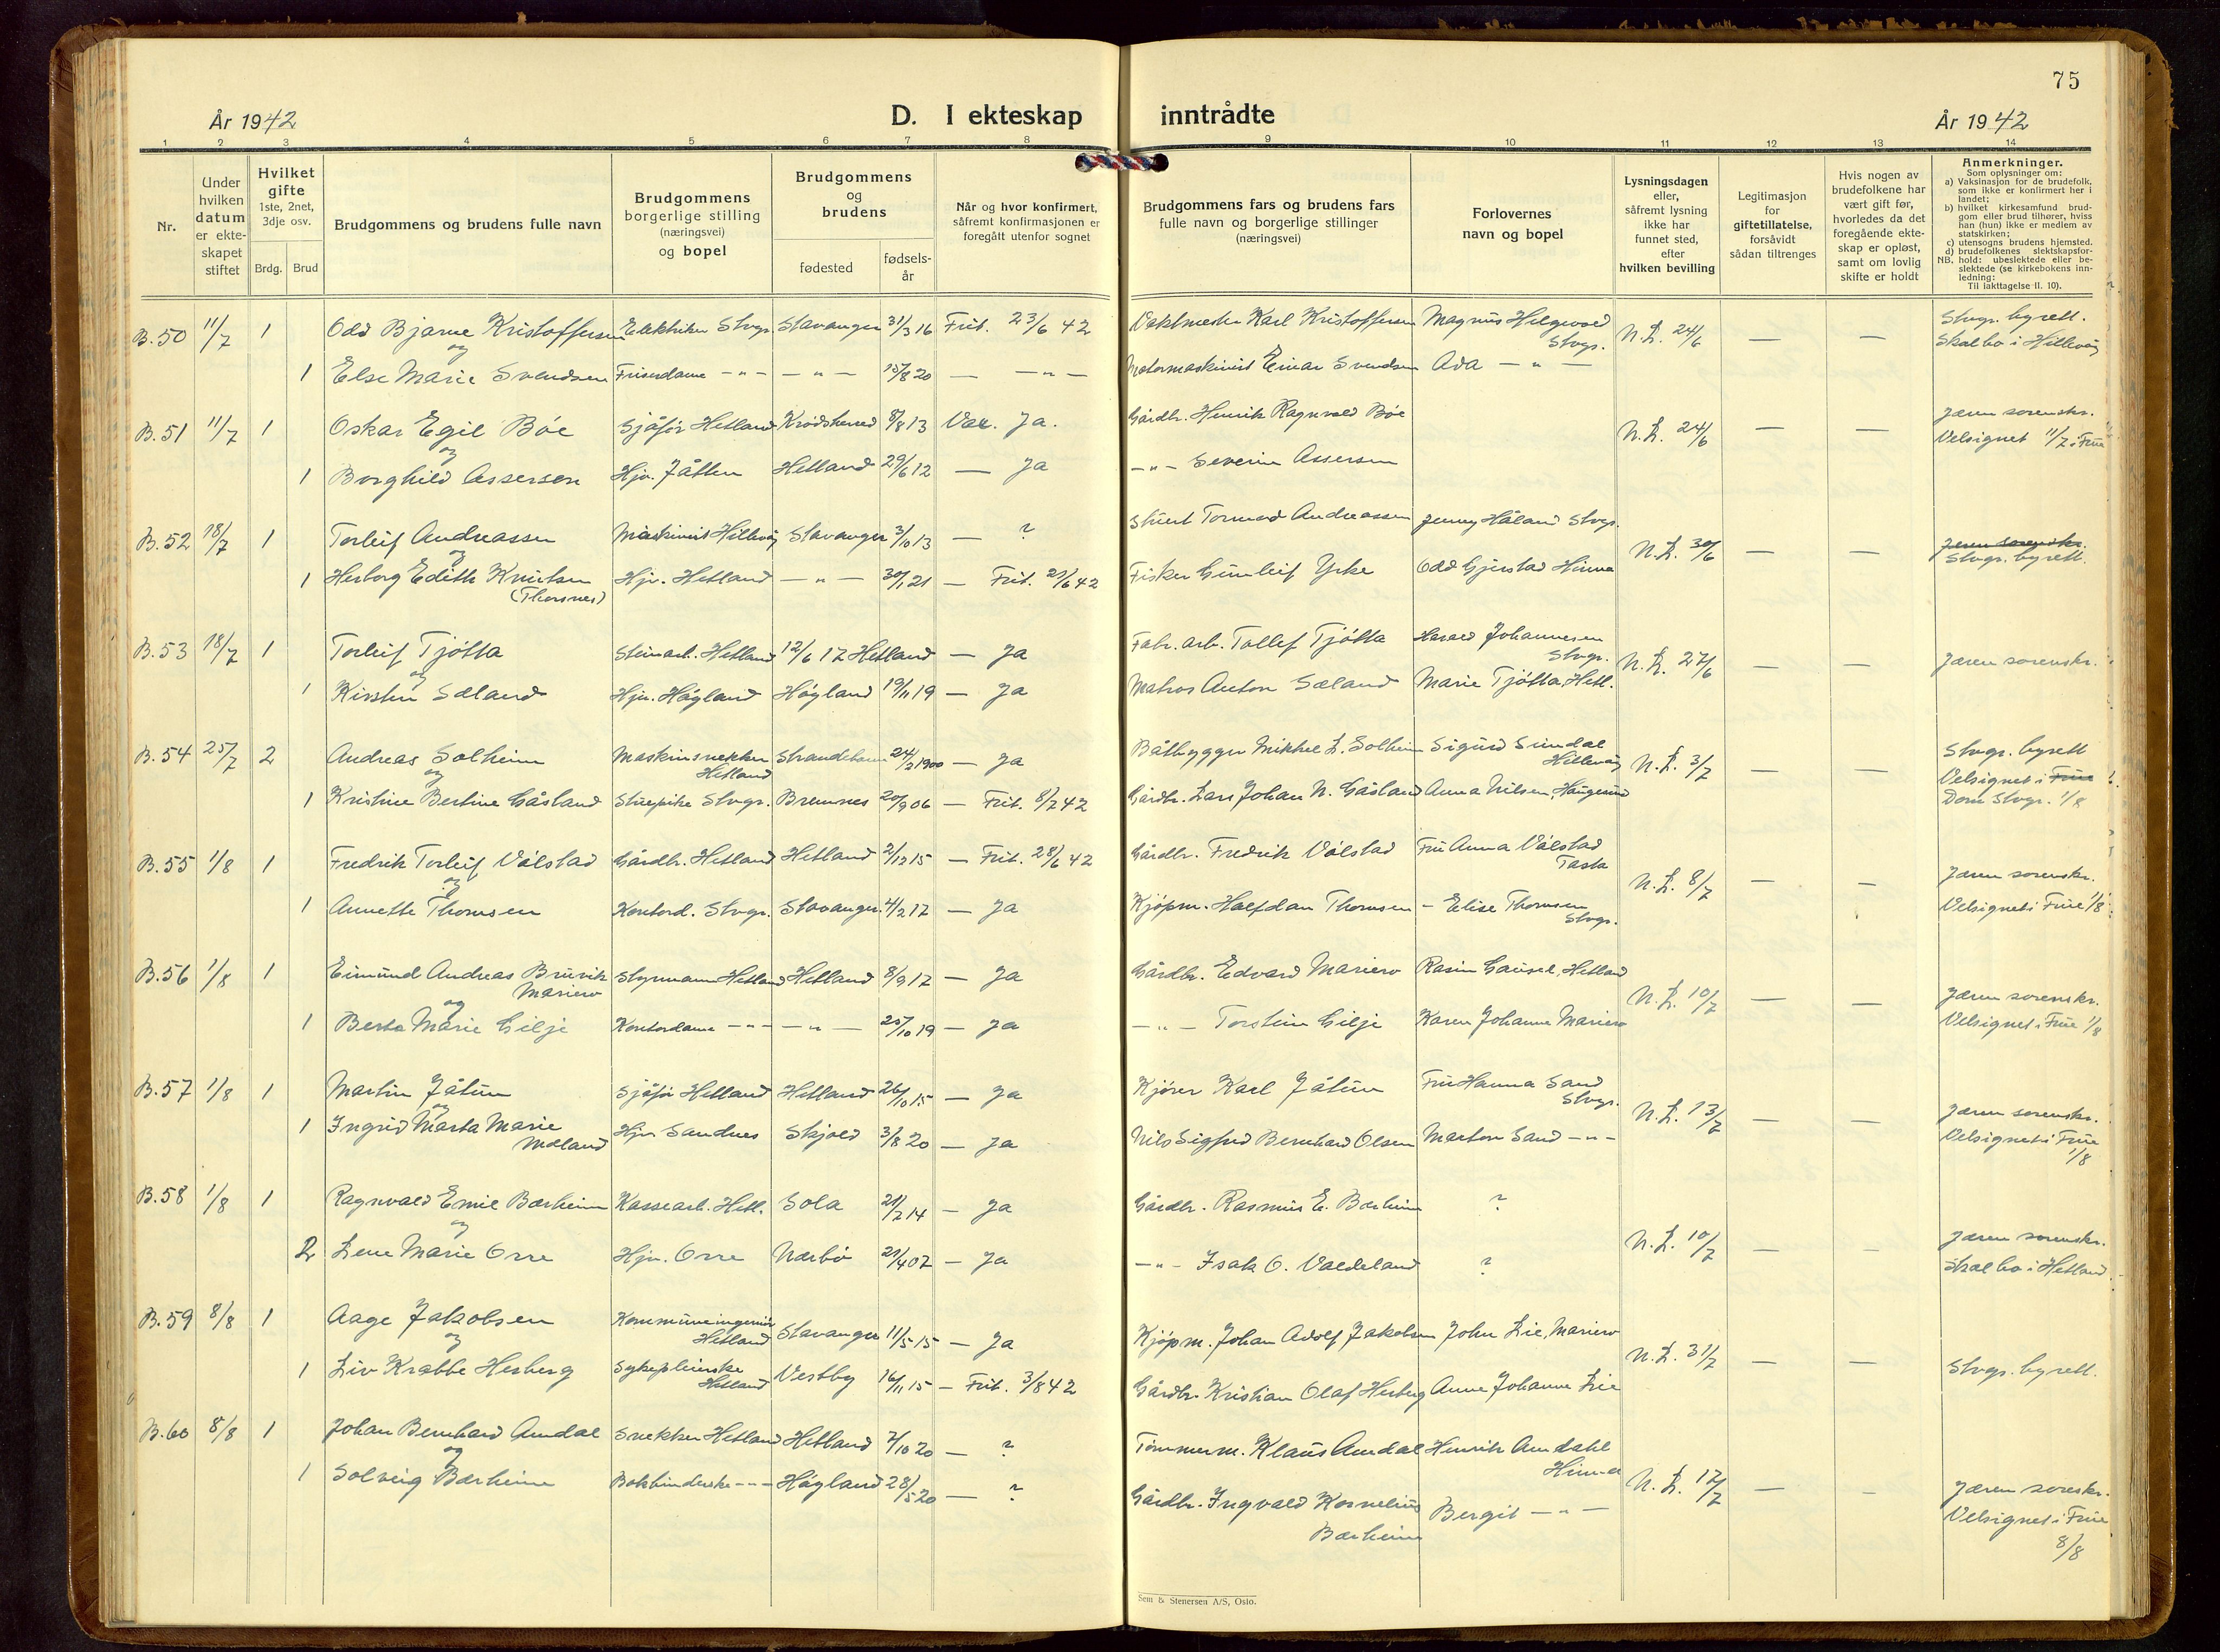 75
År 1942
D. I ekteskap inntrådte
År 1942
1 2 3 4 5 6 7 8 9 10 11 12 13 14
Nr.
Under hvilken datum er ekteskapet stiftet
Hvilket gifte 1ste, 2net, 3dje osv.
Brdg. Brud
Brudgommens og brudens fulle navn
Brudgommens borgerlige stilling (næringsvei) og bopel
Brudgommens og brudens
fødested
fødselsår
Når og hvor konfirmert, såfremt konfirmasjonen er foregått utenfor sognet
Brudgommens fars og brudens fars fulle navn og borgerlige stillinger (næringsvei)
Forlovernes navn og bopel
Lysningsdagen eller, såfremt lysning ikke har funnet sted, efter hvilken bevilling
Legitimasjon for giftetillatelse, forsåvidt sådan tiltrenges
Hvis nogen av brudefolkene har vært gift før, hvorledes da det foregående ekteskap er opløst, samt om lovlig skifte er holdt
Anmerkninger.
Som oplysninger om:
a) Vaksinasjon for de brudefolk, som ikke er konfirmert her i landet;
b) hvilket kirkesamfund brudgom eller brud tilhører, hviss han (hun) ikke er medlem av statskirken;
c) utensogns brudens hjemsted.
d) brudefolkenes slektskapsforhold: ubeslektede eller beslektede (se kirkebokens innledning:
NB. Til iakttagelse II. 10).
B.50 11/7 1 Odd Bjarne Kristoffersen Elektriker Stvgr. Stavanger 31/3 16 Frit. 23/6 42 Vaktmester Karl Kristoffersen Magnus Helgevold Stvgr. N.L. 24/6 — — Stvgr. byrett. Skal bo i Hillevåg
og
1 Else Marie Svendsen Friserdame -"- — " — 15/8 20 — — " — Motormaskinist Einar Svendsen Ada — " —
B.51 11/7 1 Oskar Egil Bøe Sjåfør Hetland Krødsherred 8/8 13 Vac. Ja. Gårdbr. Henrik Ragnvald Bøe N.L. 24/6 — — Jæren sorenskr. Velsignet 11/7 i Frue
og
1 Borghild Assersen Hjv. Jåtten Hetland 29/6 12 — Ja — " — Severin Assersen
B.52 18/7 1 Torleif Andreassen Maskinist Hillevåg Stavanger 3/10 13 — ? Stuert Tormod Andreassen Jenny Håland Stvgr. N.L. 30/6 — — Jæren sorenskr. Stvgr. byrett.
og
1 Herborg Edith Knutsen (Thorsnes) Hjv. Hetland — " — 30/1 21 — Frit. 21/6 42 Fisker Gunleif Yrke Odd Gjerstad Hinna
B.53 18/7 1 Torleif Tjøtta Steinarb. Hetland 12/6 17 Hetland — Ja Fabr. arb. Tollef Tjøtta Harald Johannesen Stvgr. N.L. 27/6 — — Jæren sorenskr.
og
1 Kirsten Sæland Hjv. Høyland Høyland 19/11 19 — Ja Matros Anton Sæland Marie Tjøtta, Hetl.
B.54 25/7 2 Andreas Solheim Maskinsnekker Hetland Strandebarm 24/2 1900 — Ja Båtbygger Mikkel L. Solheim Sigurd Sundal Hillevåg N.L. 3/7 — — Stvgr. byrett Velsignet i Frue Dom Stvgr. 1/8
og
1 Kristine Bertine Gåsland Stuepike Stvgr. Bremnes 20/9 06 — Frit. 8/7 42 Gårdbr. Lars Johan N. Gåsland Anna Nilsen, Haugesund
B.55 1/8 1 Fredrik Torleif Vølstad Gårdbr. Hetland Hetland 2/12 15 — Frit. 28/6 42 Gårdbr. Fredrik Vølstad Fru Anna Vølstad Tasta N.L. 8/7 — — Jæren sorenskr. Velsignet i Frue 1/8
og
1 Annette Thomsen Kontord. Stvgr. Stavanger 4/2 17 — Ja Kjøpm. Halfdan Thomsen — Elise Thomsen Stvgr.
B.56 1/8 1 Eimund Andreas Bruvik Mariero Styrmann Hetland Hetland 8/9 17 — Ja Gårdbr. Edvard Mariero Rasm Gausel, Hetland N.L. 10/7 — — Jæren sorenskr. Velsignet i Frue 1/8
og
1 Berta Marie Gilje Kontordame -"- — " — 25/10 19 — Ja — " — Torstein Gilje Karen Johanne Mariero
B.57 1/8 1 Martin Jåtun Sjåfør Hetland Hetland 26/10 15 — Ja Kjører Karl Jåtun Fru Hanna Sand Stvgr. N.L. 13/7 — — Jæren sorenskr. Velsignet i Frue 1/8
og
1 Ingrid Marta Marie Mæland Hjv Sandnes Skjold 3/8 20 — Ja Nils Sigfred Bernhard Olsen Marton Sand -"-
B.58 1/8 1 Ragnvald Emil Bærheim Kassearb. Hetl. Sola 21/2 14 — Ja Gårdbr. Rasmus E. Bærheim ? N.L. 10/7 — — Jæren sorenskr. Skal bo i Hetland
og
2 Lene Marie Orre Hjv. Orre Nærbø 21/4 07 — Ja -"- Isak O. Valdeland ?
B.59 8/8 1 Aage Jakobsen Kommuneingeniør Hetland Stavanger 11/5 15 — Ja Kjøpm. Johan Adolf Jakobsen John Lie, Mariero N.L. 31/7 — — Stvgr. byrett.
og
1 Liv Krabbe Herberg Sykepleierske Hetland Vestby 16/11 15 — Frit. 3/8 42 Gårdbr. Kristian Olaf Herberg Anne Johanne Lie
B.60 8/8 1 Johan Bernhard Aamdal Snekker Hetland Hetland 2/10 20 — ? Tømmerm. Klaus Aamdal Henrik Aamdahl Hinna N.L. 17/7 — — Jæren sorenskr. Velsignet i Frue 8/8
og
1 Solveig Bærheim Bokbinderske -"- Høyland 28/5 20 — ? Gårdbr. Ingvald Kornelius Bærheim Bergit — " —
Sem & Stenersen A/S, Oslo.